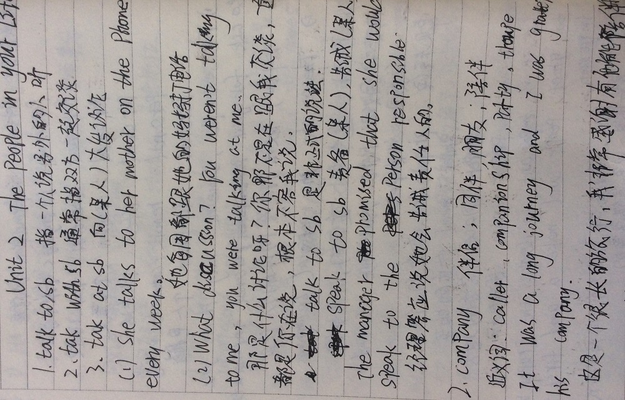 Unit 2 The People in your
1. talk to sb 指一个人说另外的人听
2. tak with sb 通常指双方一起交谈
3. tak at sb 向(某人)大发议论
(1) She talks to her mother on the Phone
every week.
她每周都跟她的妈妈打电话
(2) What discussion? You weren't talking
to me, you were talking at me.
那是什么讨论呀?你那不是在跟我交谈,
都是你在说,根本不容我说。
talk to sb 是非正式的说法.
speak to sb 责备(某人),告诫(某人
The manager promised that she would
speak to the person responsible.
经理答应说她会告诫责任人的。
2. company 伴侣;同伴,朋友;陪伴
近义词: caller, companionship, Party,
It was a long journey and I was
his company.
这是一个很长的旅行,我非常感谢有他的陪伴